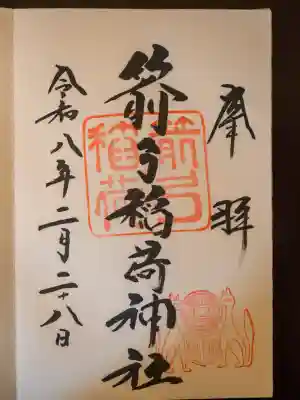 奉拝
箭弓稲荷神社
令和八年二月二十八日
箭弓稲荷